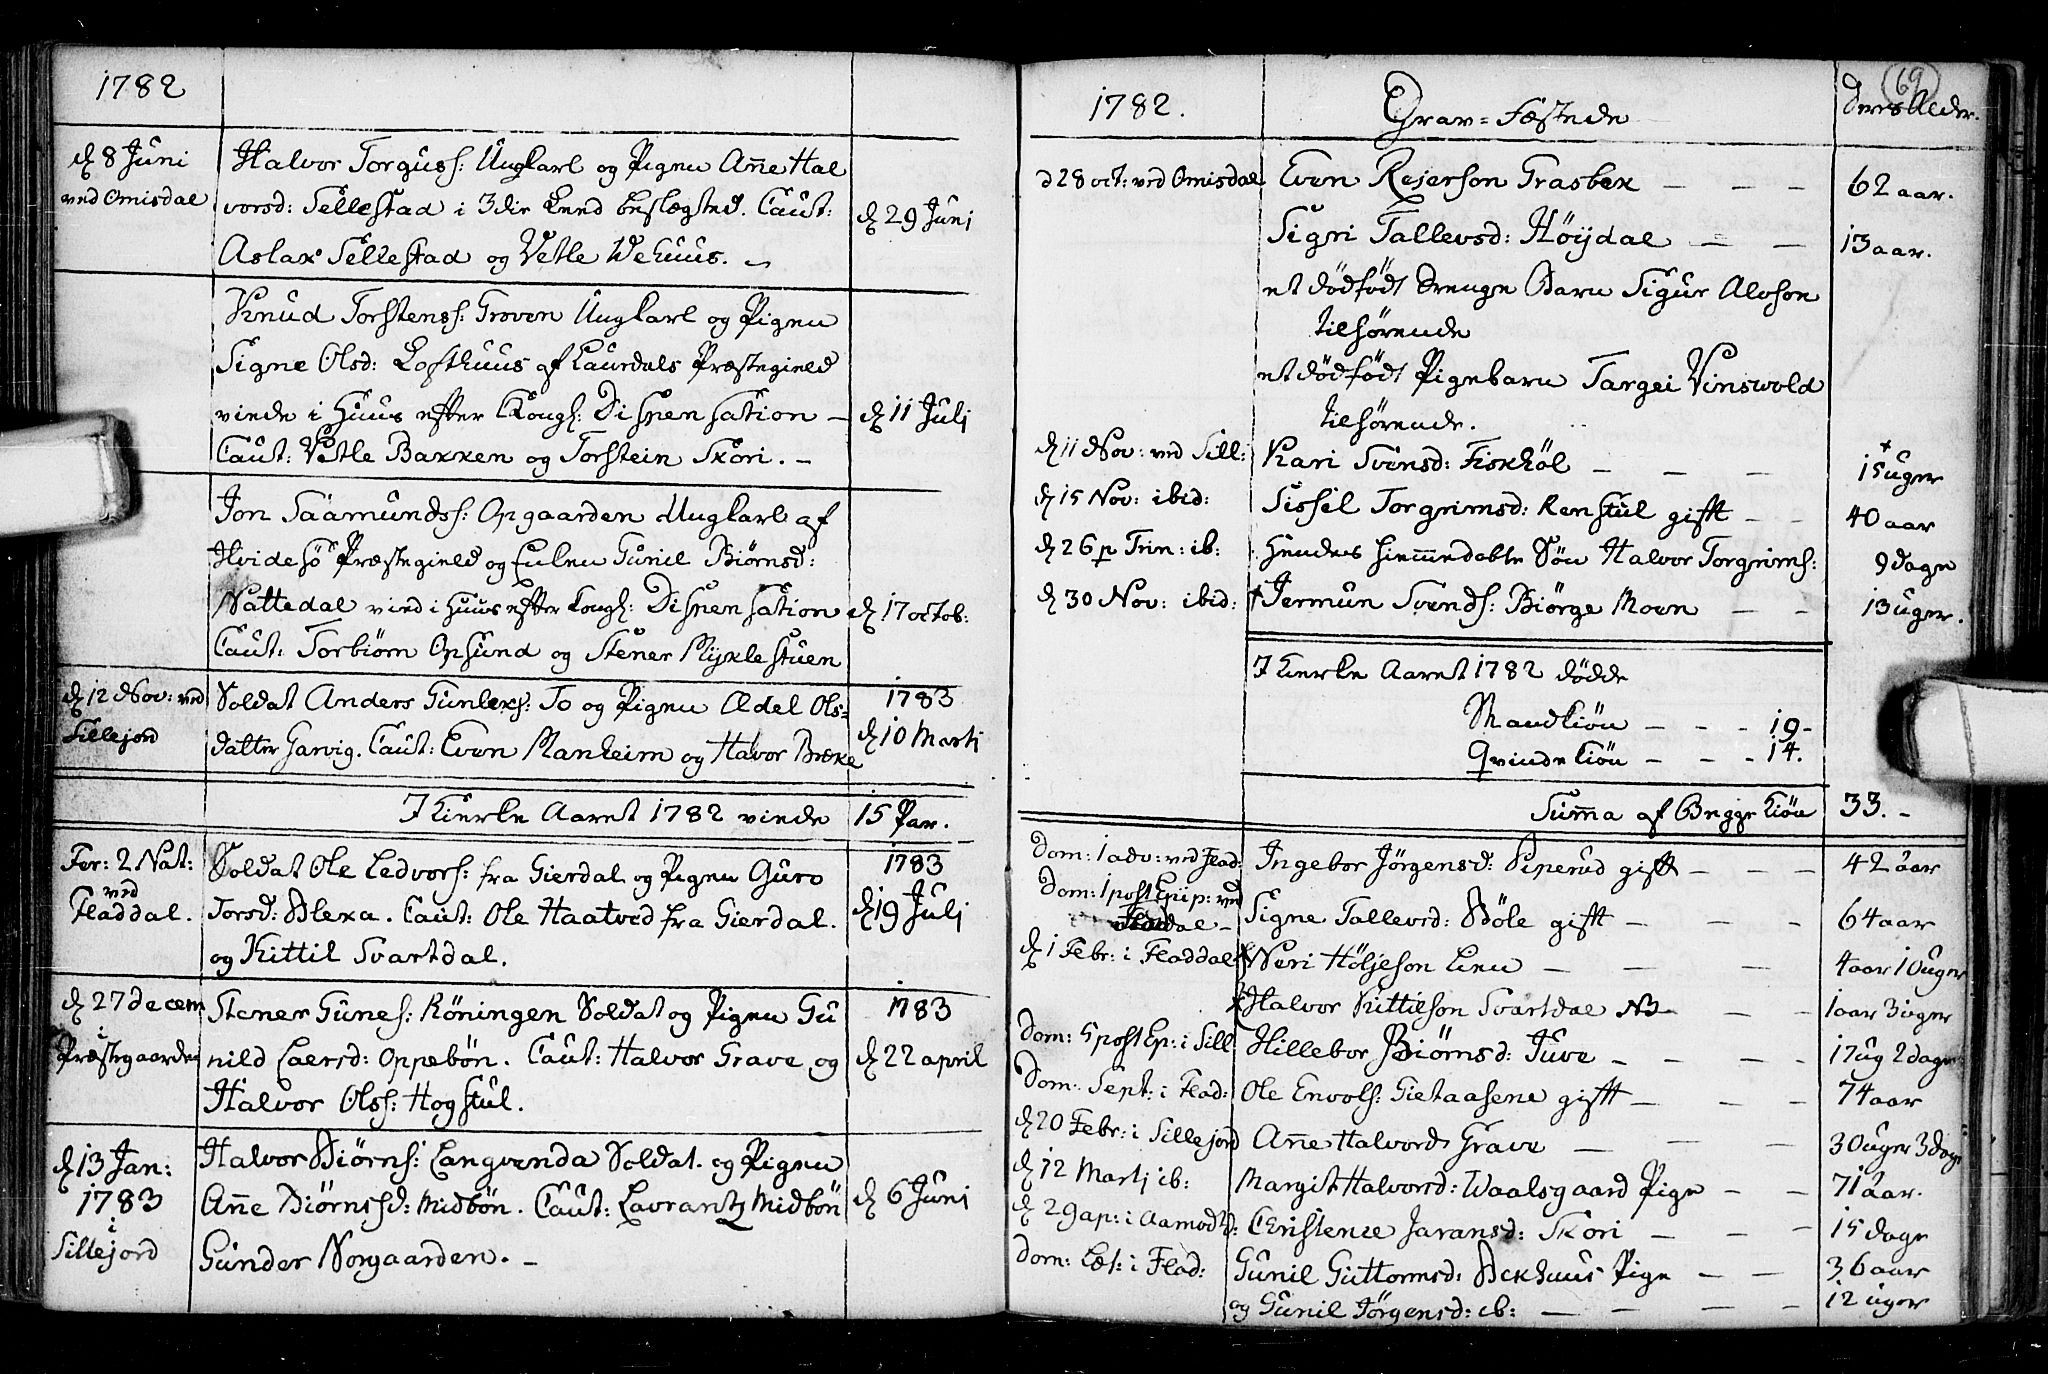 1782
d 8 Juni
ved Omisdal
Halvor Torguss: Ungkarl og Pigen Aññe Hal
vorsd: Sellestad i 3die Leed beslægted. Caut:
Aslax Sellestad og Vetle Wehuus. -
d 29 Junj
Knud Torstenss: Groven Ungkarl og Pigen
Signe Olsd: Lofthuus af Laurdals Præstegield
viede i Huus efter Kongl: Dispensation -
Caut: Vetle Baxken og Torstein Skori. -
d 11 Julj
Jon Saamundss: Opgaarden Ungkarl af
Hvidesö Præstegield og Enken Gunil Biörnsd:
Nattedal vied i Huus efter Kongl: Dispensation
Caut: Torbiörn Opsund og Stener Myklestuen
d 17 octob:
d 12 Nov: ved
Sillejord
Soldat Anders Gunleks: To og Pigen Ædel Ols=
datter Garvig. Caut: Even Manheim og Halvor Bræke
1783
d 10 Martj
I Kierke Aaret 1782 viede
15 Par.
Fer: 2 Nat:
ved
Fladdal.
Soldat Ole Ledvors: fra Gierdal og Pigen Guro
Torsd: Blexa. Caut: Ole Haatved fra Gierdal.
og Kittil Svartdal.
1783
d 19 Julj
d 27 decem
i
Præstegaarden
Stener Gunes: Röningen Soldat og Pigen Gu
nild Laersd: Oppebön. Caut: Halvor Grave og
Halvor Olss: Hogstul.
1783
d 22 april
d 13 Jan:
1783
i
Sillejord
Halvor Biörns: Langvenda Soldat og Pigen
Añne Biörnsd: Midbön. Caut: Lavrantz Midbön
Gunder Norgaarden. -
d 6 Junj
1782.
Grav=Fæstede
69
deres Alder.
d 28 oct: ved Omisdal
Even Rejerson Grasbek - - -
62 aar.
Sigri Tallevsd: Höijdal - -
13 aar.
et dödfödt Drenge Barn Sigur Alvson
tilhörende
et dödfödt Pigebarn Targei Vinswold
tilhörende.
d 11 Nov: ved Sill:
Kari Svensd: Fiskhöl - - -
15 uger
d 15 Nov: ibid:
Sissel Torgrimsd: Renstul gifft - -
40 aar
d 26 p Trin: ib:
hendes hiemmedøbte Sön Halvor Torgrims:
9 dage
d 30 Nov: ibid:
Jermun Svends: Biörge Moen - -
13 uger.
I Kierke Aaret 1782 dödde
Mandkiön - - - 19-
Qvindekiön - - - 14.
Suma af Begge Kiön
33. -
Dom: 1 adv: ved Flad:
Ingebor Jörgensd: Piperud gifft - - -
42 aar
Dom: 1 post Epip: ved
Fladdal -
Signe Tallevsd: Böle gifft - - -
64 aar
d 1 Febr: i Fladdal
Neri Höljeson Lien - - -
4 aar 10 uger
Halvor Kittilson Svartdal NB - -
1 aar 3 uger
Dom: 5 post Ep: i Sill
Hillebor Biörnsd: Juve - - - -
17 ug 2 dage
Dom: Sept: i Flad:
Ole Envols: Gietaasene gifft - - -
74 aar
d 20 Febr: i Sillejord
Añne Halvord Grave - - -
30 uger 3 dage
d 12 Martj ib:
Margit Halvorsd: Waalsgaard Pige - -
71 aar.
d 29 ap: i Aamodtd:
Christence Jaransd: Skori - - -
15 dage
Dom: Læt: i Flad:
Gunil Guttormsd: Bekhuus Pige - -
36 aar
og Gunil Jörgensd: ib: - - - -
12 uger